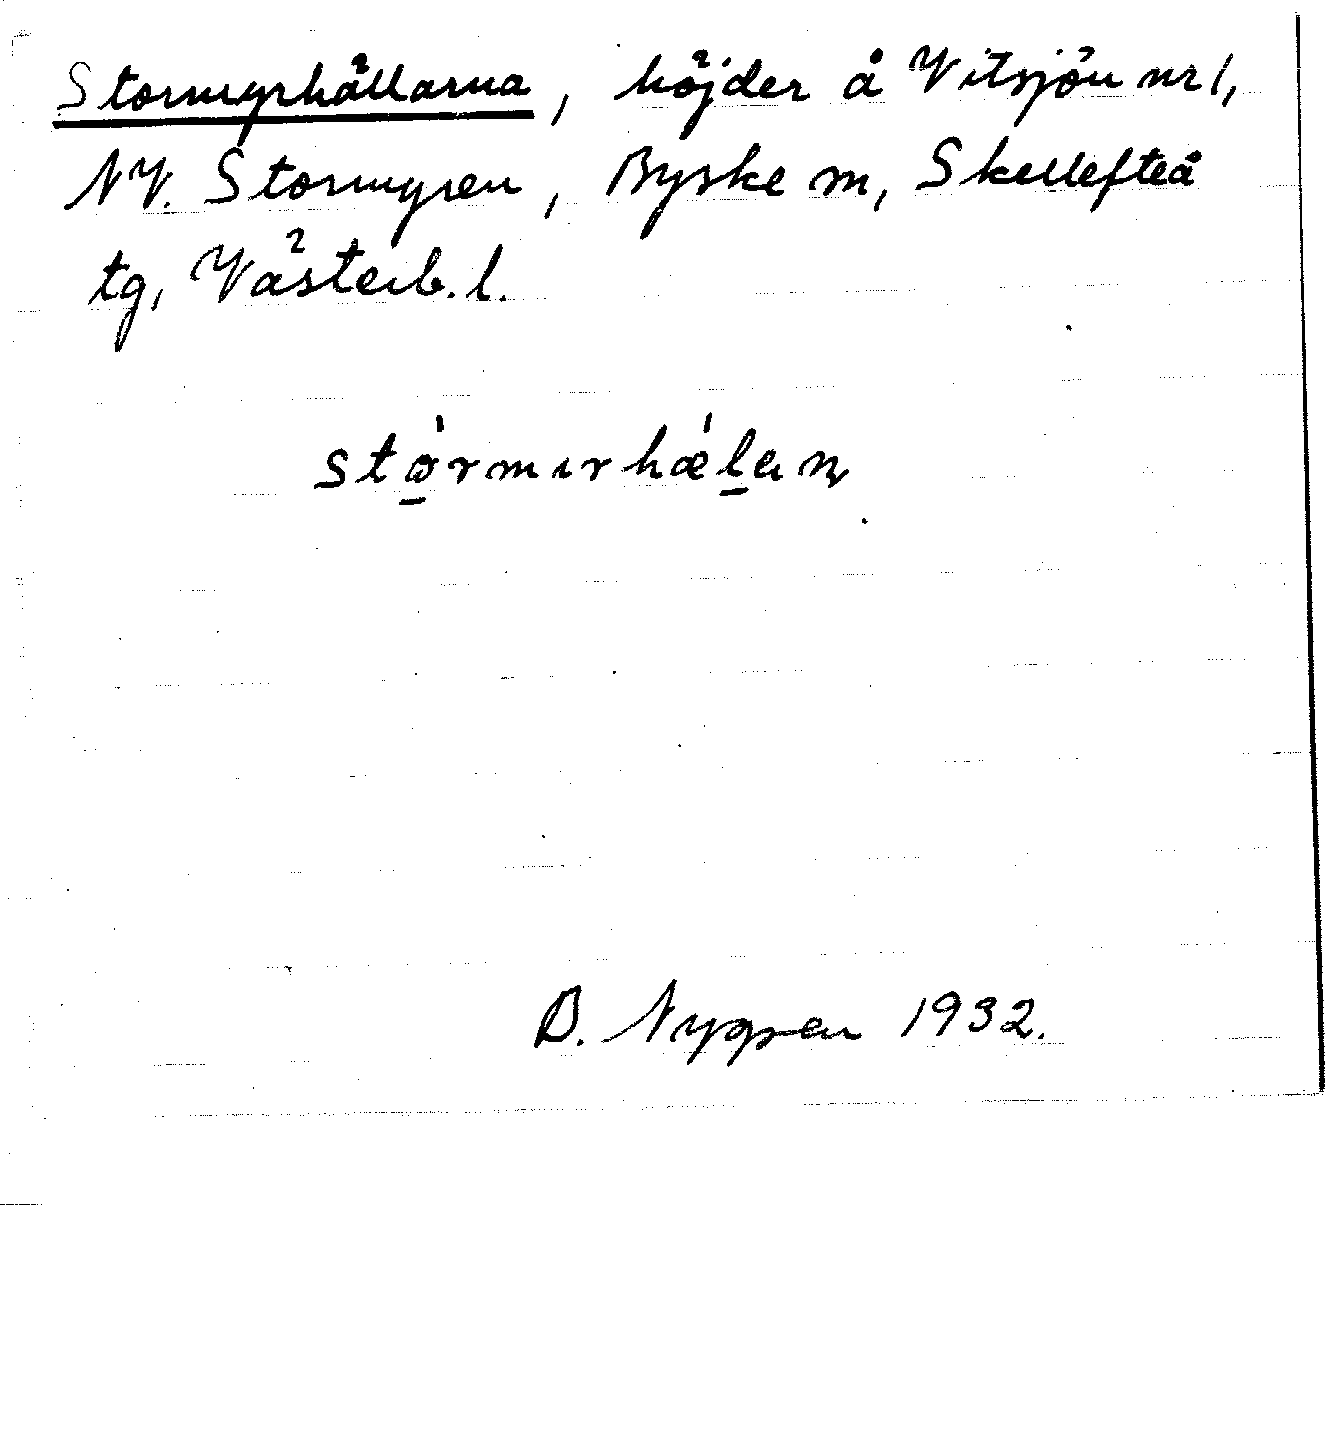 Stormyrhällarna, höjder å Vitsjön nr 1,
NV. Stormyren, Byske sn, Skellefteå
tg, Västerb. l.
stǿ̱rmırhǽḻan̨
B. Nygren 1932.